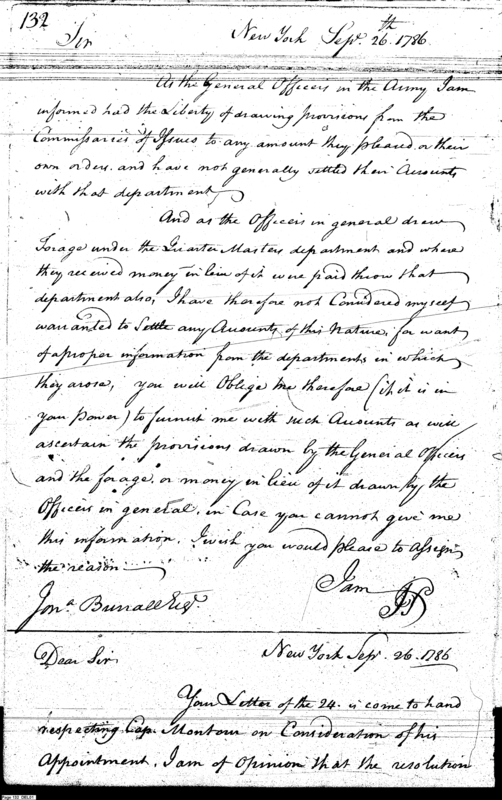 132
New York Sepr. 26.th 1786
Sir
As the General Officers in the Army I am
informed had the Liberty of drawing provisions from the
Commissaries of Issues to any amount they pleased on their
own orders. and have not generally settled their Accounts
with that department
And as the Officers in general drew
Forage under the Quarter Masters department and where
they received money in lieu of it were paid throw that
department also, I have therefore not Considered myself
warranted to Settle any Accounts, of this Nature, for want
of a proper information from the departments in which
they arose, you will Oblige me therefore (if it is in
your power) to furnish me with such Accounts as will
ascertain the provisions drawn by the General Officers
and the forage, or money in lieu of it drawn by the
Officers in general, in Case you cannot give me
this information. I wish you would please to assign
the reason
I am
Jona. Burrall Esqr.
New York Sepr. 26. 1786
Dear Sir,
Your Letter of the 24. is come to hand
respecting Cap. Montour on Consideration of his
Appointment. I am of Opinion that the resolution